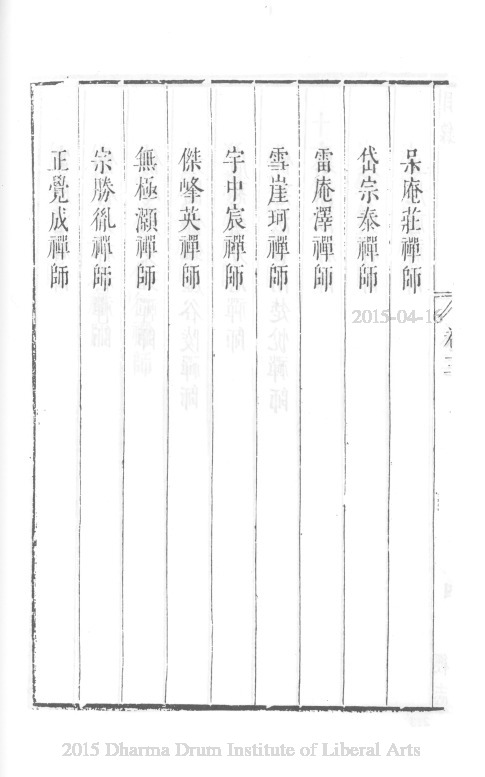 呆庵莊禪師
岱宗泰禪師
雷庵澤禪師
雪崖珂禪師
宇中宸禪師
傑峰英禪師
無極灝禪師
宗勝胤禪師
正覺成禪師
2015-04-16
2015 Dharma Drum Institute of Liberal Arts